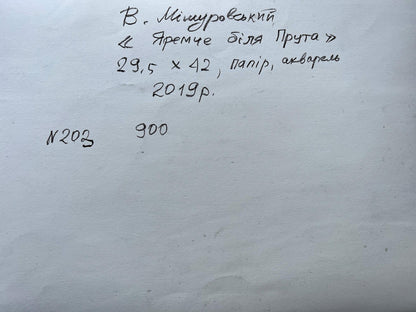 В. Мішуровський
« Яремче біля Прута »
29,5 × 42, папір, акварель
2019р.
N203 900